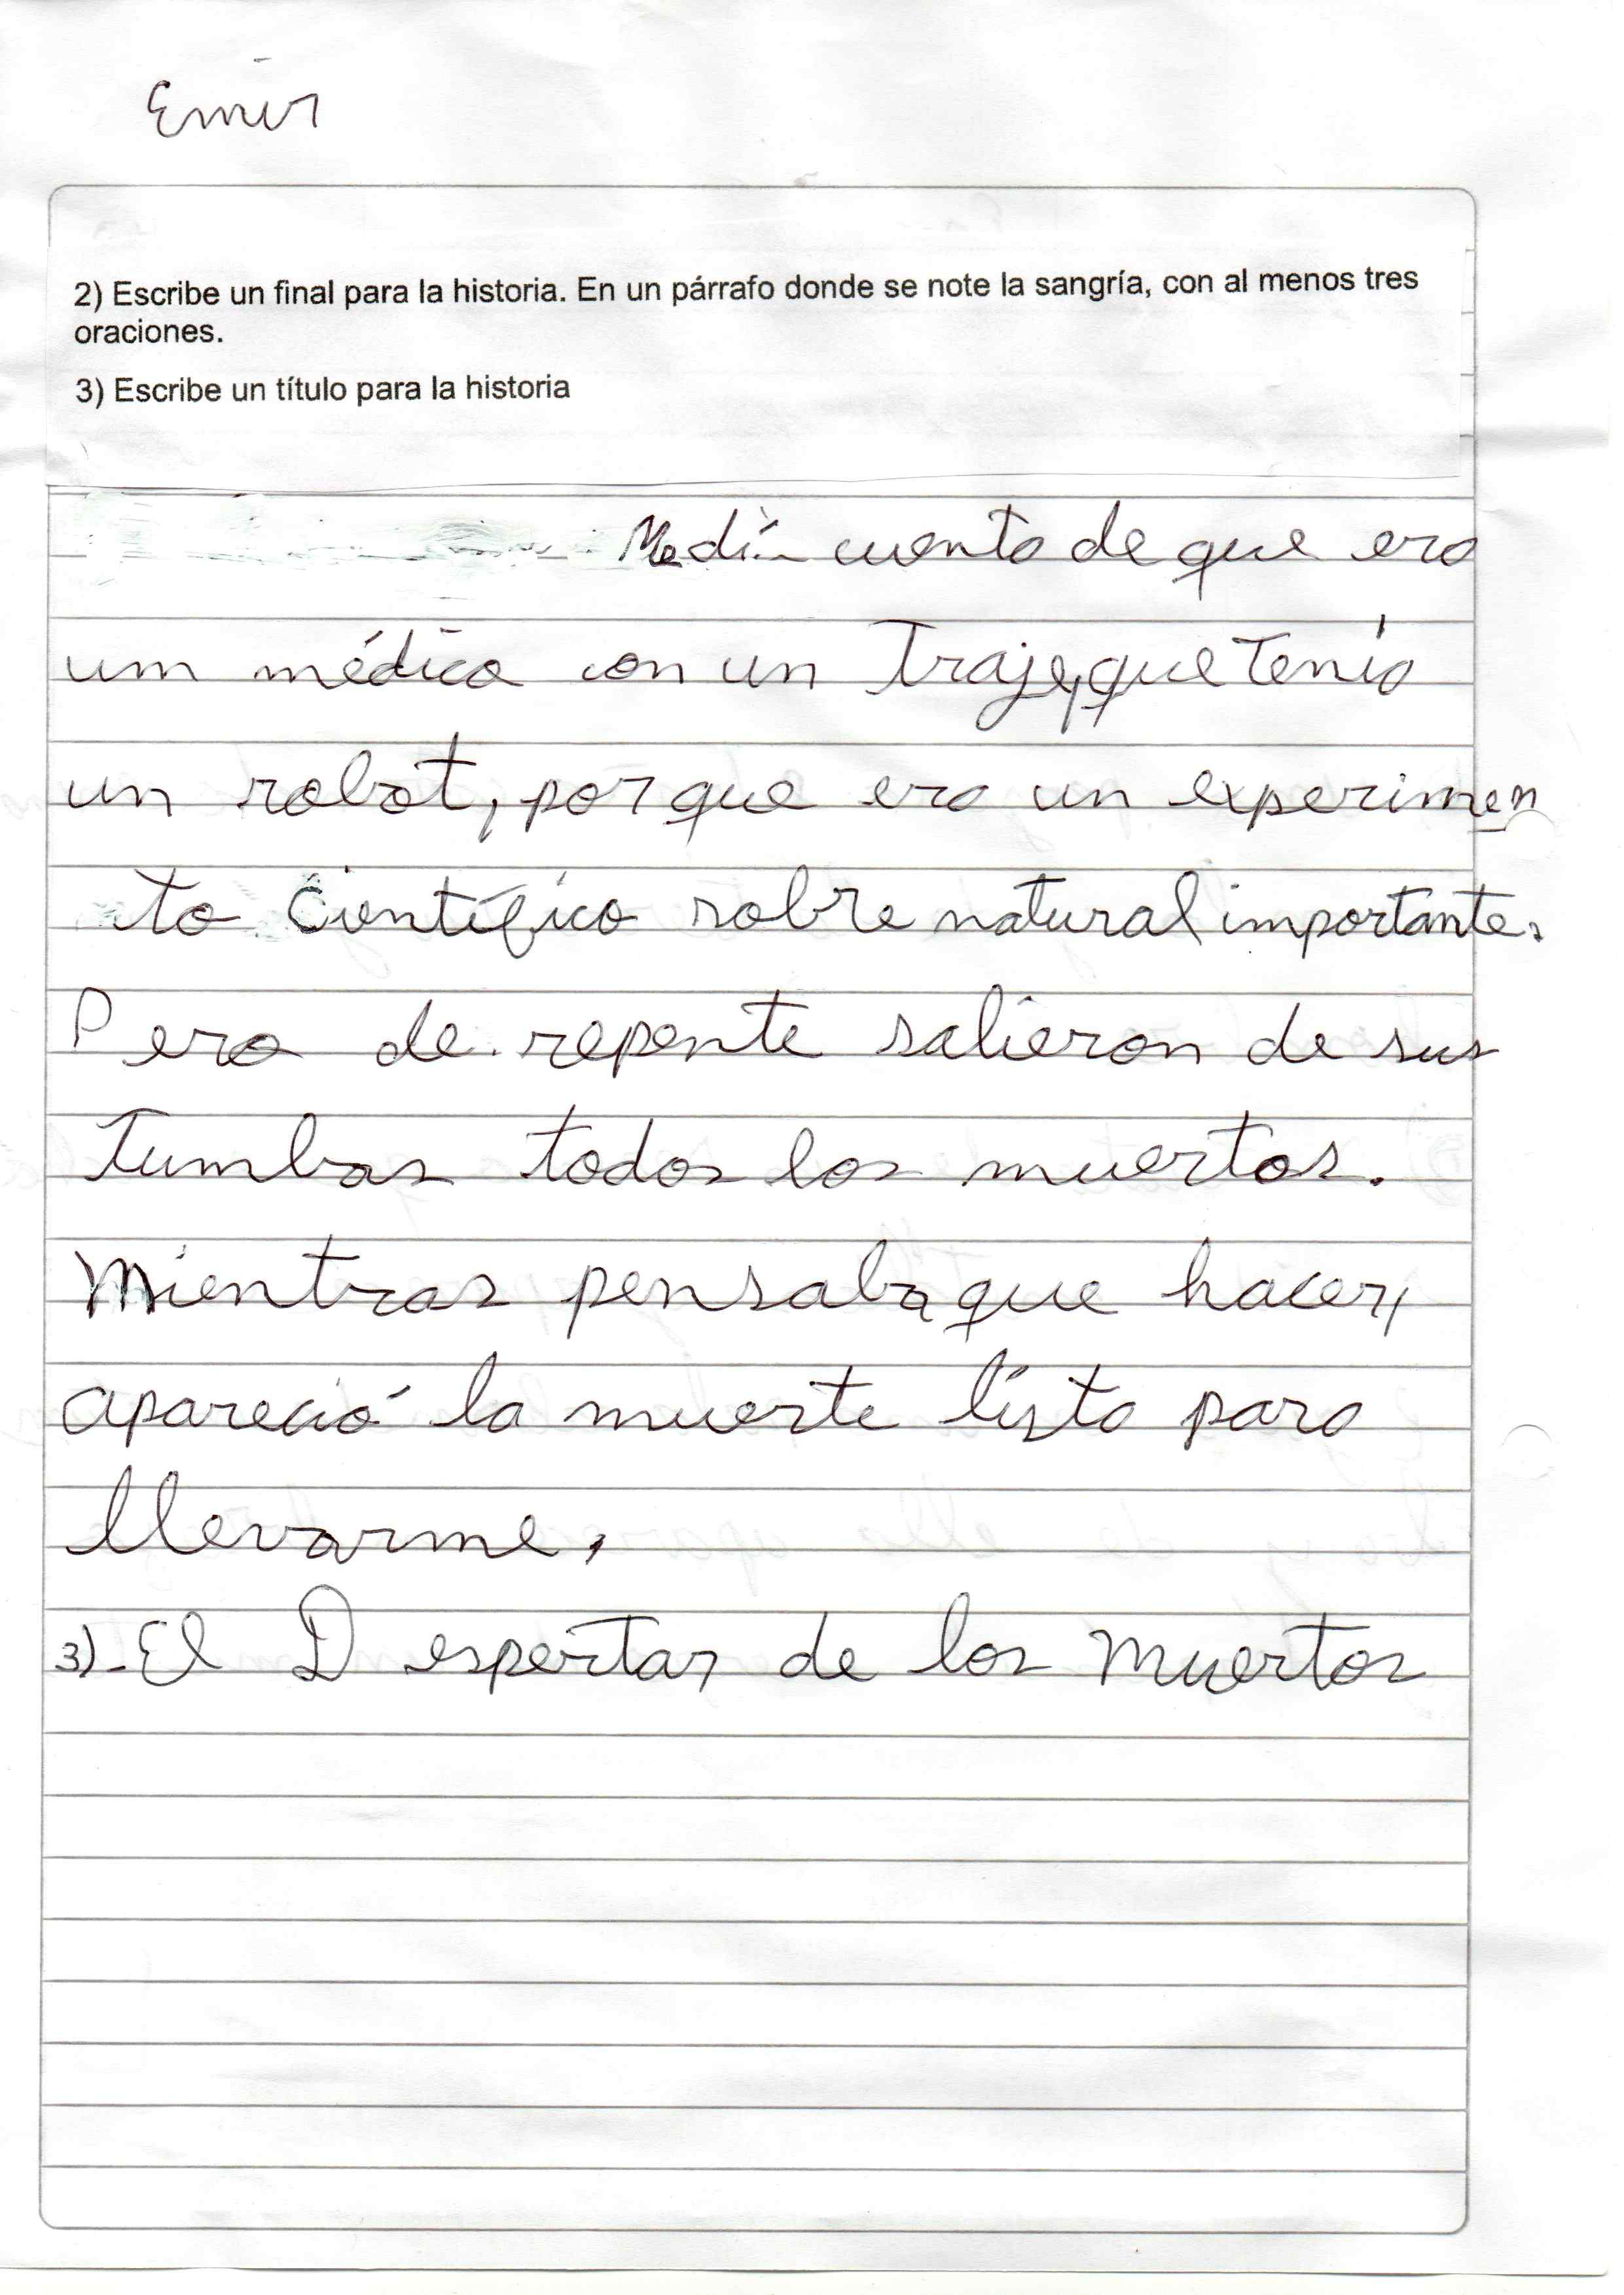 Emir
2) Escribe un final para la historia. En un párrafo donde se note la sangría, con al menos tres
oraciones.
3) Escribe un título para la historia
Me dí cuenta de que era
um médico con un traje, que tenía
un robot, porque era un experimen
to científico sobre natural importante.
Pero de repente salieron de sus
tumbas todos los muertos.
Mientras pensaba que hacer,
apareció la muerte lista para
llevarme.
3)-El Despertar de los Muertos